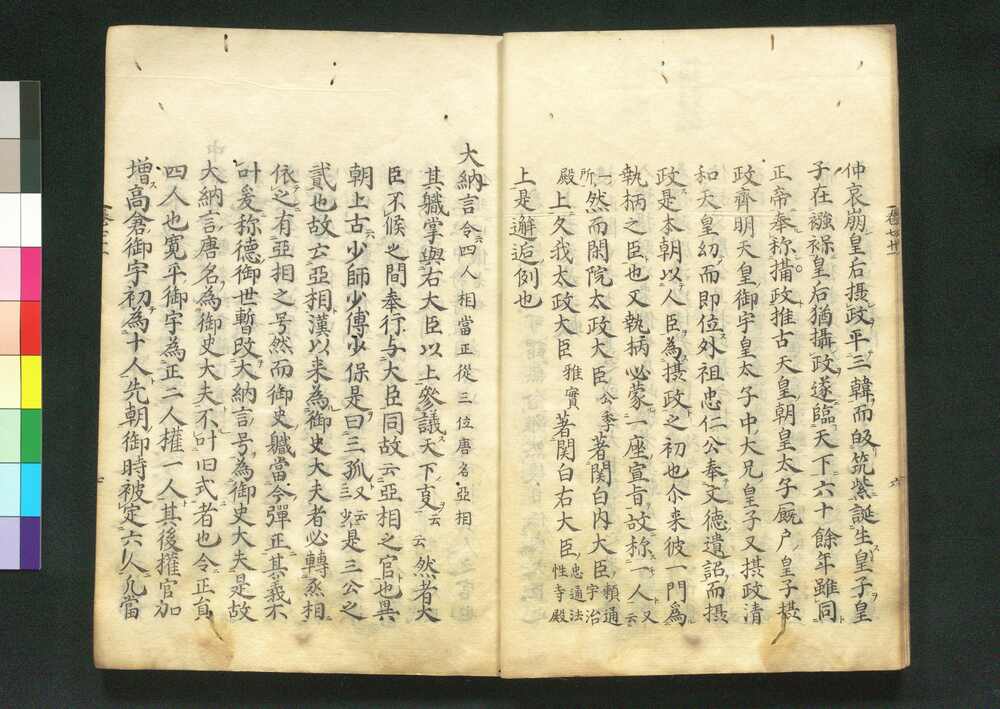 仲哀崩皇后摂政平三韓而皈筑紫誕生皇子皇
子在襁褓皇后猶攝政遂臨天下六十餘年雖同
正帝奉称攝政推古天皇朝皇太子厩户皇子摂
政齊明天皇御宇皇太子中大兄皇子又摂政清
和天皇幼而即位外祖忠仁公奉文徳遺詔而摂
政是本朝以人臣為摂政之初也尒来彼一門為
執柄之臣也又執柄必蒙一座宣旨故称一人又云
一所然而閑院太政大臣公季著関白内大臣頼通宇治
殿上久我太政大臣雅實著関白右大臣忠通法性寺殿
上是邂逅例也
大納言令云四人相當正従三位唐名亞相
其軄掌與右大臣以上參議天下叓云云然者大
臣不候之間奉行与大臣同故云亞相之官也異
朝上古少師少傅少保是曰三孤又云三少是三公之
貳也故云亞相漢以来為御史大夫者必轉烝相
依之有亞相之号然而御史軄當今彈正其義不
叶爰称德御世暫改大納言号為御史大夫是故
大納言唐名為御史大夫不叶旧式者也令正員
四人也寛平御宇為正二人權一人其後權官加
増高倉御宇初為十人先朝御時被定六人凢當